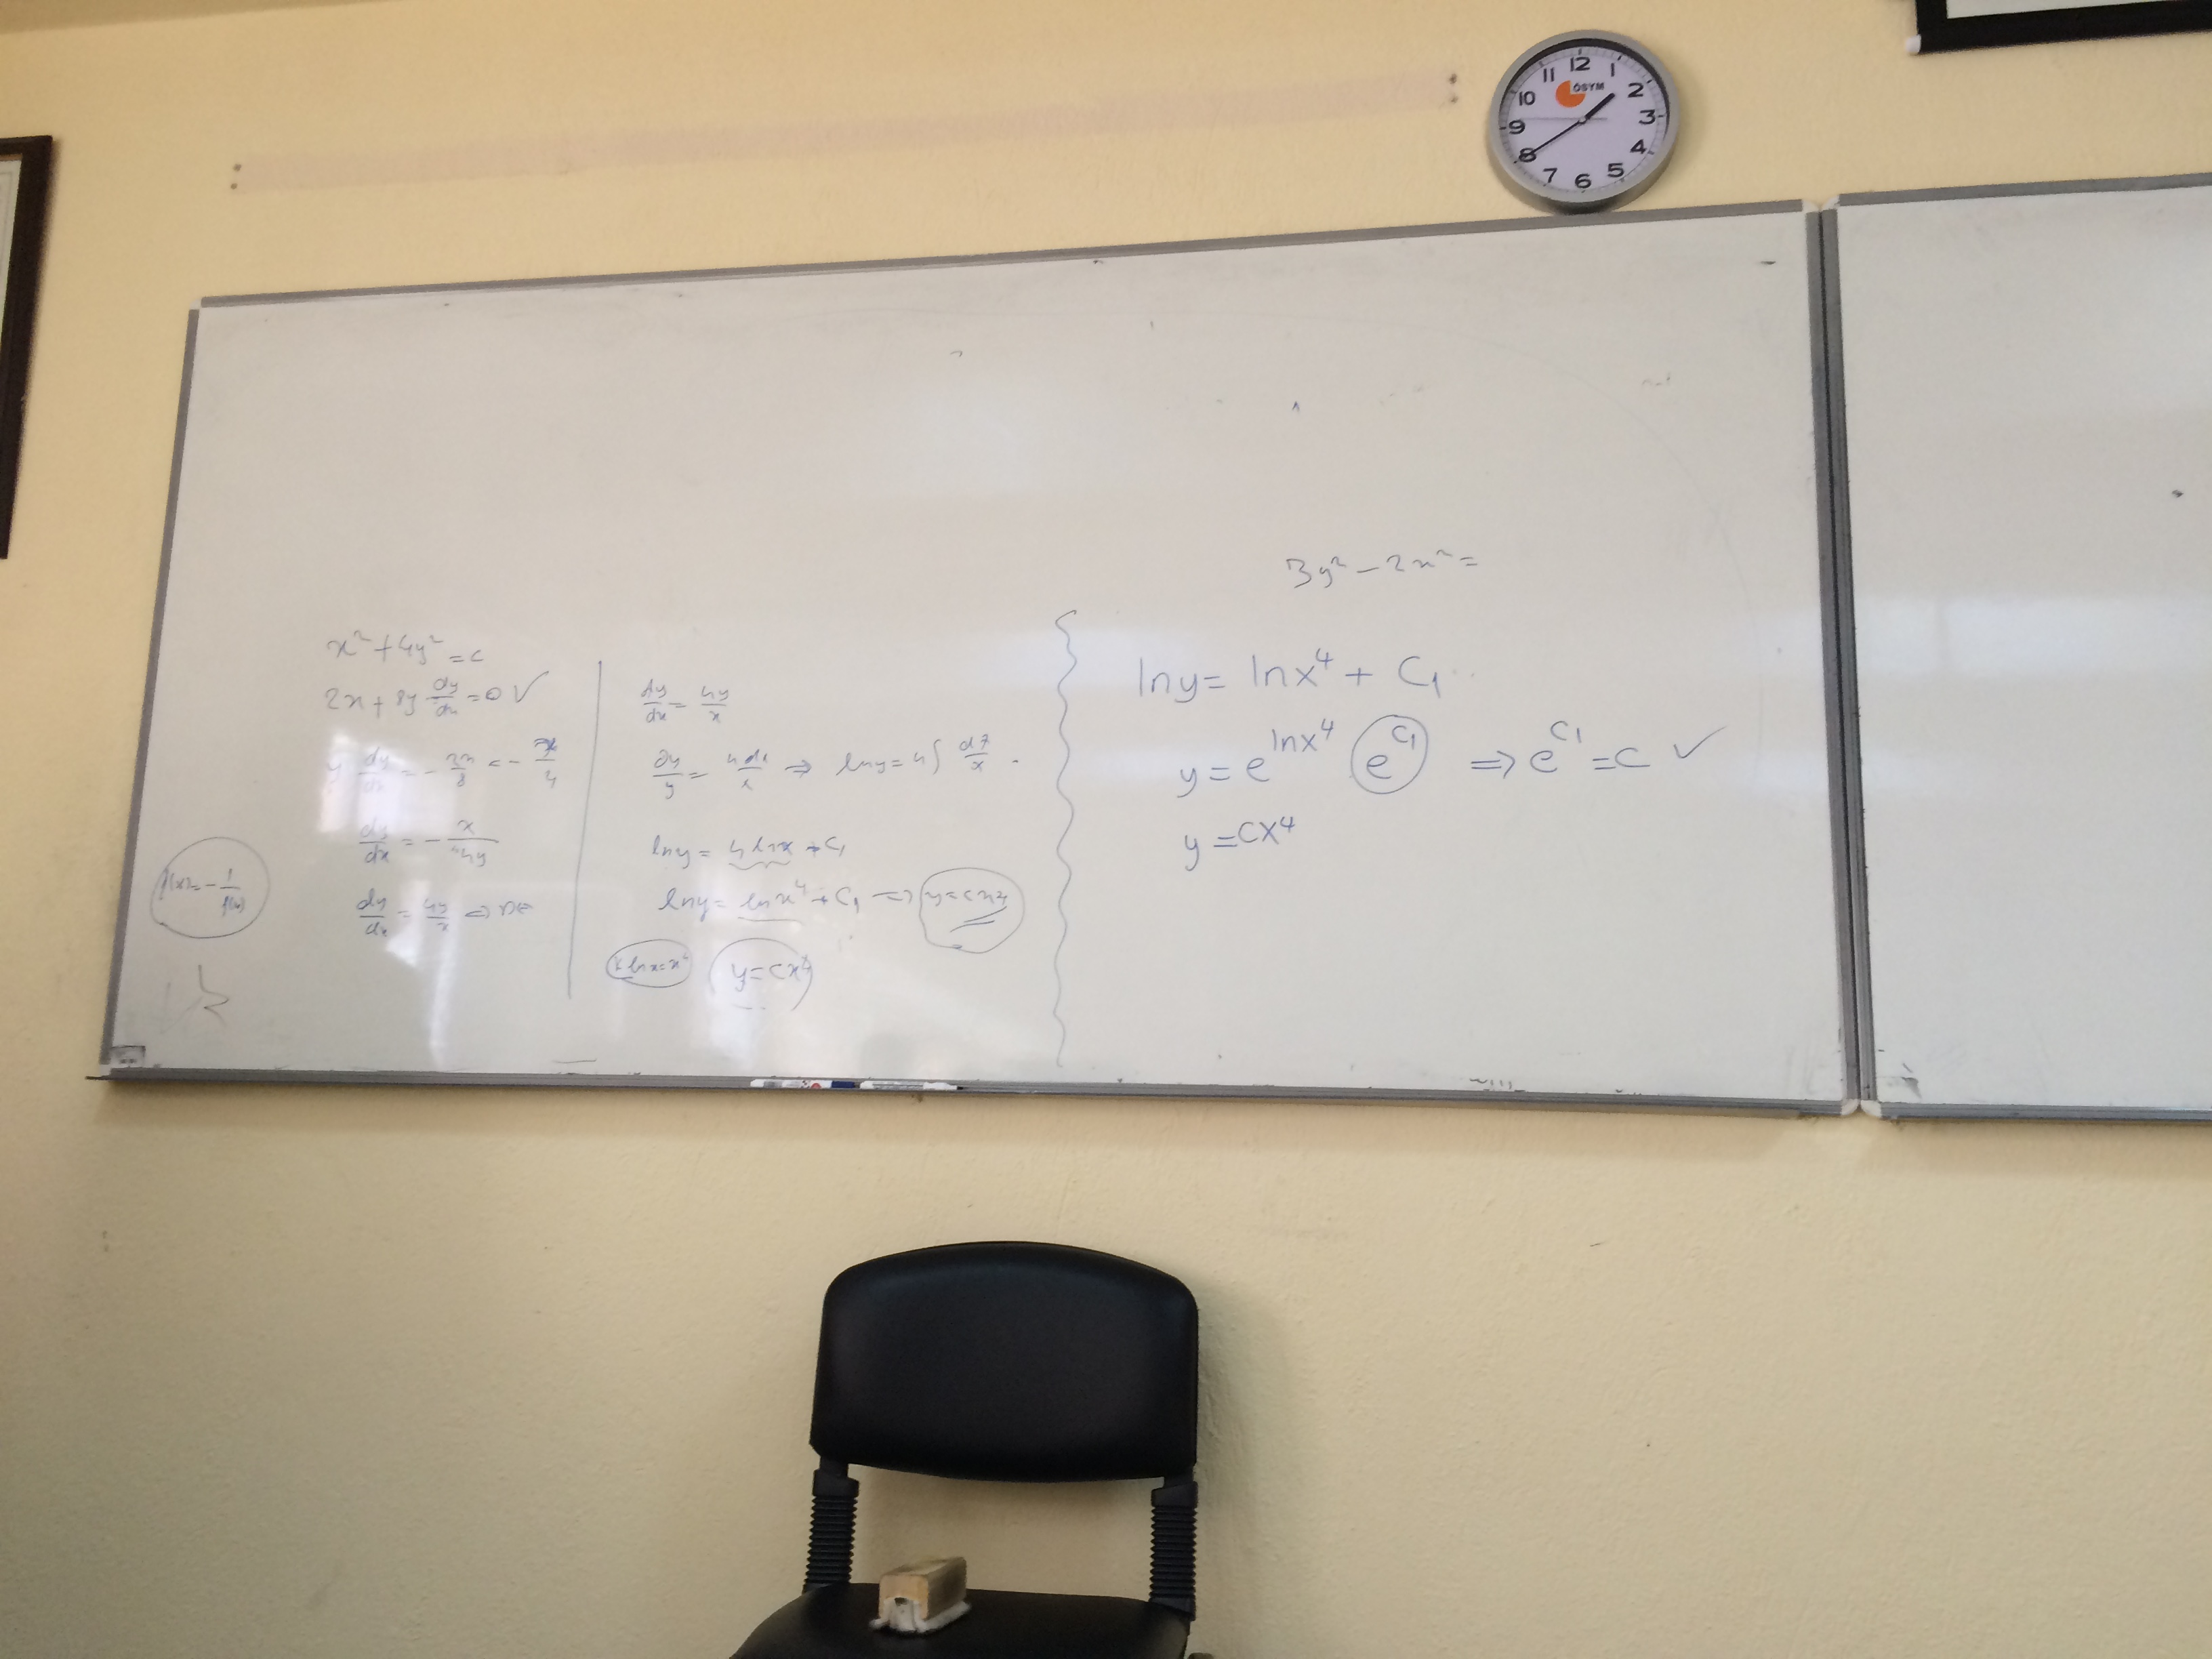 12
1
2
3
4
5
6
7
8
9
10
11
ÖSYM
x² + 4y² = c
2x + 8y dy/dx = 0 ✓
y dy/dx = - 2x/8 = - x/4
dy/dx = - x/4y
dy/dx = 4y/x ⇒ DE
f'(x) = - 1/f'(x)
dy/dx = 4y/x
dy/y = 4dx/x ⇒ lny = 4∫ dx/x
lny = 4 lnx + C₁
lny = lnx⁴ + C₁ ⇒ y = cx⁴
lnx = x⁴
y = cx⁴
3y² - 2x² =
lny = lnx⁴ + C₁
y = e^lnx⁴ e^C₁ ⇒ e^C₁ = C ✓
y = CX⁴